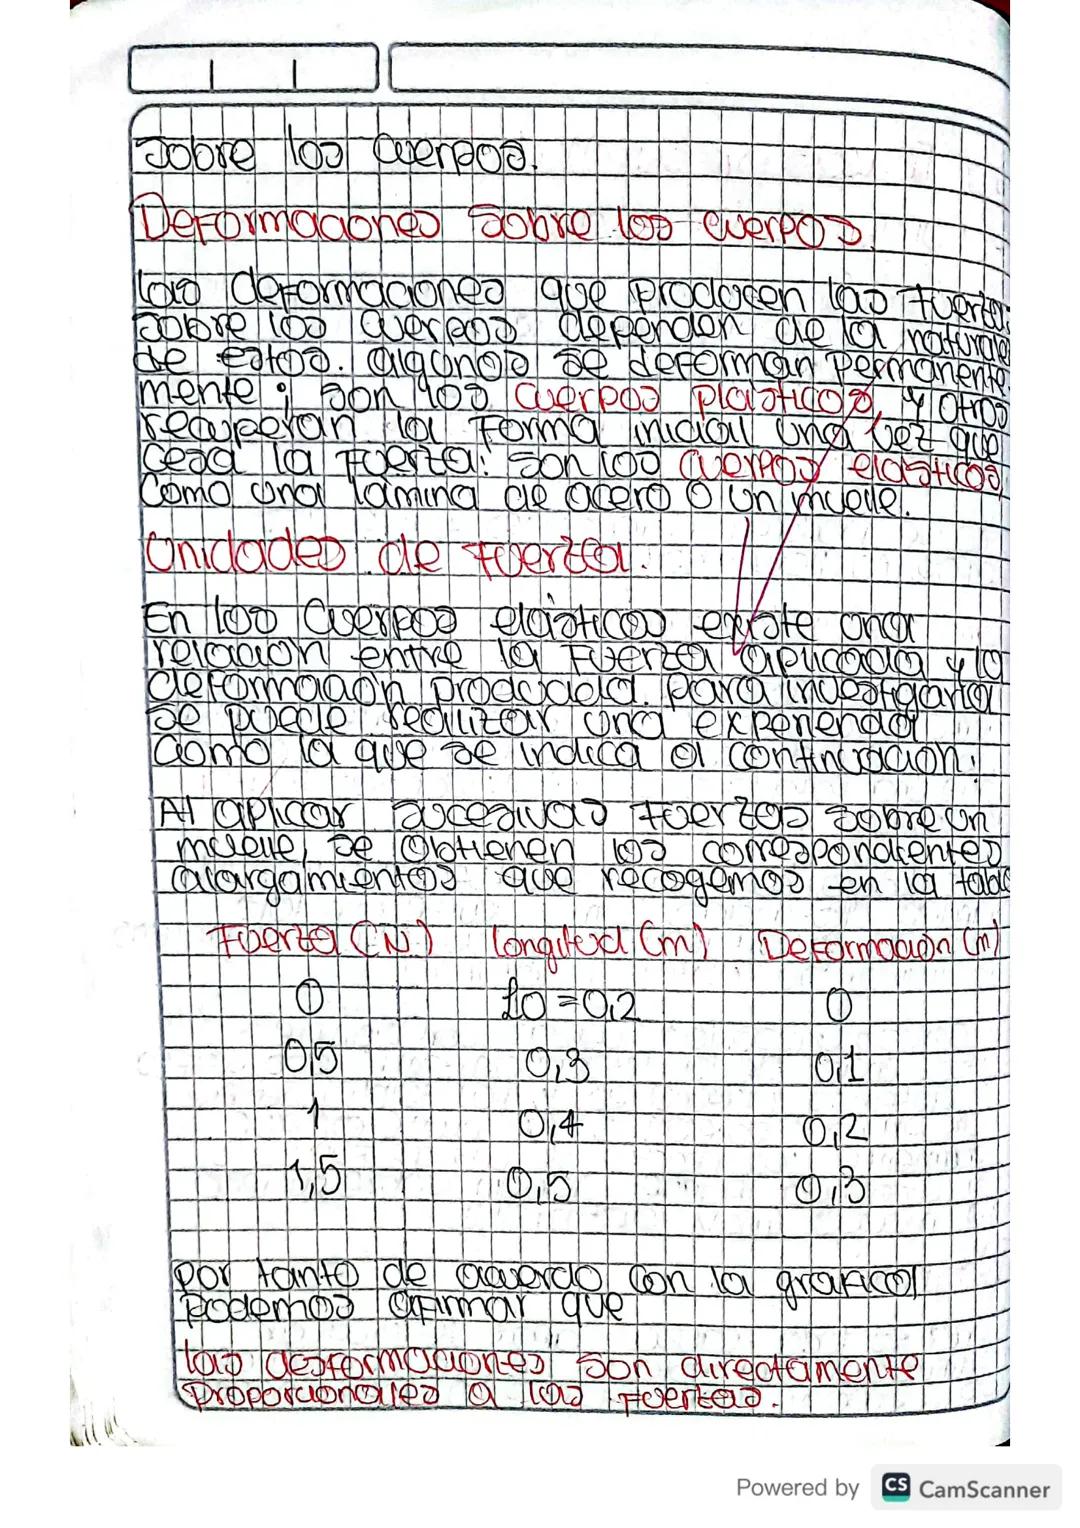 sobre los cuerpos.
Deformaciones sobre los cuerpos.
las deformaciones que producen las fuerzas
sobre los cuerpos dependen de la naturale
de estos. algunos se deforman permanente
mente; son los cuerpos plasticos, y otros
recuperan la forma inicial una vez que
cesa la fuerza: son los cuerpos elasticos,
como una lámina de acero o un muelle.
Unidades de fuerza.
En los cuerpos elásticos existe una
relacion entre la fuerza aplicada y la
deformación producida. para investigarla
se puede realizar una experiencia
como la que se indica a continuacion:
Al aplicar sucesivas fuerzas sobre un
muelle, se obtienen los correspondientes
alargamientos que recogemos en la tabla
Fuerza (N) longitud (m) Deformación (m)
0 Lo=0,2 0
0,5 0,3 0,1
1 0,4 0,2
1,5 0,5 0,3
por tanto de acuerdo con la grafica
podemos afirmar que
las desformaciones son directamente
proporcionales a las fuerzas.
Powered by CS CamScanner